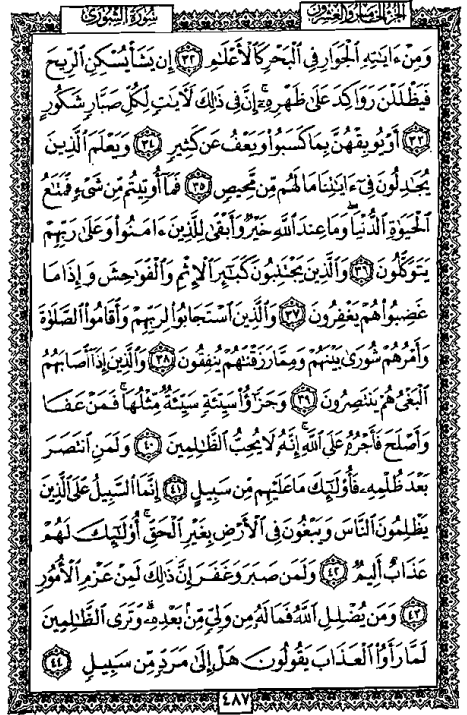 الجزء الخامس والعشرون
سورة الشورى
وَمِنْ ءَايَٰتِهِ ٱلْجَوَارِ فِي ٱلْبَحْرِ كَٱلْأَعْلَٰمِ ٣٢ إِن يَشَأْ يُسْكِنِ ٱلرِّيحَ
فَيَظْلَلْنَ رَوَاكِدَ عَلَىٰ ظَهْرِهِۦٓ ۚ إِنَّ فِي ذَٰلِكَ لَأٓيَٰتٍ لِّكُلِّ صَبَّارٍ شَكُورٍ
٣٣ أَوْ يُوبِقْهُنَّ بِمَا كَسَبُوا۟ وَيَعْفُ عَن كَثِيرٍ ٣٤ وَيَعْلَمَ ٱلَّذِينَ
يُجَٰدِلُونَ فِيٓ ءَايَٰتِنَا مَا لَهُم مِّن مَّحِيصٍ ٣٥ فَمَآ أُوتِيتُم مِّن شَيْءٍ فَمَتَٰعُ
ٱلْحَيَوٰةِ ٱلدُّنْيَا ۖ وَمَا عِندَ ٱللَّهِ خَيْرٌ وَأَبْقَىٰ لِلَّذِينَ ءَامَنُوا۟ وَعَلَىٰ رَبِّهِمْ
يَتَوَكَّلُونَ ٣٦ وَٱلَّذِينَ يَجْتَنِبُونَ كَبَٰٓئِرَ ٱلْإِثْمِ وَٱلْفَوَٰحِشَ وَإِذَا مَا
غَضِبُوا۟ هُمْ يَغْفِرُونَ ٣٧ وَٱلَّذِينَ ٱسْتَجَابُوا۟ لِرَبِّهِمْ وَأَقَامُوا۟ ٱلصَّلَوٰةَ
وَأَمْرُهُمْ شُورَىٰ بَيْنَهُمْ وَمِمَّا رَزَقْنَٰهُمْ يُنفِقُونَ ٣٨ وَٱلَّذِينَ إِذَآ أَصَابَهُمُ
ٱلْبَغْيُ هُمْ يَنتَصِرُونَ ٣٩ وَجَزَٰٓؤُا۟ سَيِّئَةٍ سَيِّئَةٌ مِّثْلُهَا ۖ فَمَنْ عَفَا
وَأَصْلَحَ فَأَجْرُهُۥ عَلَى ٱللَّهِ ۚ إِنَّهُۥ لَا يُحِبُّ ٱلظَّٰلِمِينَ ٤٠ وَلَمَنِ ٱنتَصَرَ
بَعْدَ ظُلْمِهِۦ فَأُو۟لَٰٓئِكَ مَا عَلَيْهِم مِّن سَبِيلٍ ٤١ إِنَّمَا ٱلسَّبِيلُ عَلَى ٱلَّذِينَ
يَظْلِمُونَ ٱلنَّاسَ وَيَبْغُونَ فِي ٱلْأَرْضِ بِغَيْرِ ٱلْحَقِّ ۚ أُو۟لَٰٓئِكَ لَهُمْ
عَذَابٌ أَلِيمٌ ٤٢ وَلَمَن صَبَرَ وَغَفَرَ إِنَّ ذَٰلِكَ لَمِنْ عَزْمِ ٱلْأُمُورِ
٤٣ وَمَن يُضْلِلِ ٱللَّهُ فَمَا لَهُۥ مِن وَلِيٍّ مِّنۢ بَعْدِهِۦ ۗ وَتَرَى ٱلظَّٰلِمِينَ
لَمَّا رَأَوُا۟ ٱلْعَذَابَ يَقُولُونَ هَلْ إِلَىٰ مَرَدٍّ مِّن سَبِيلٍ ٤٤
٤٨٧